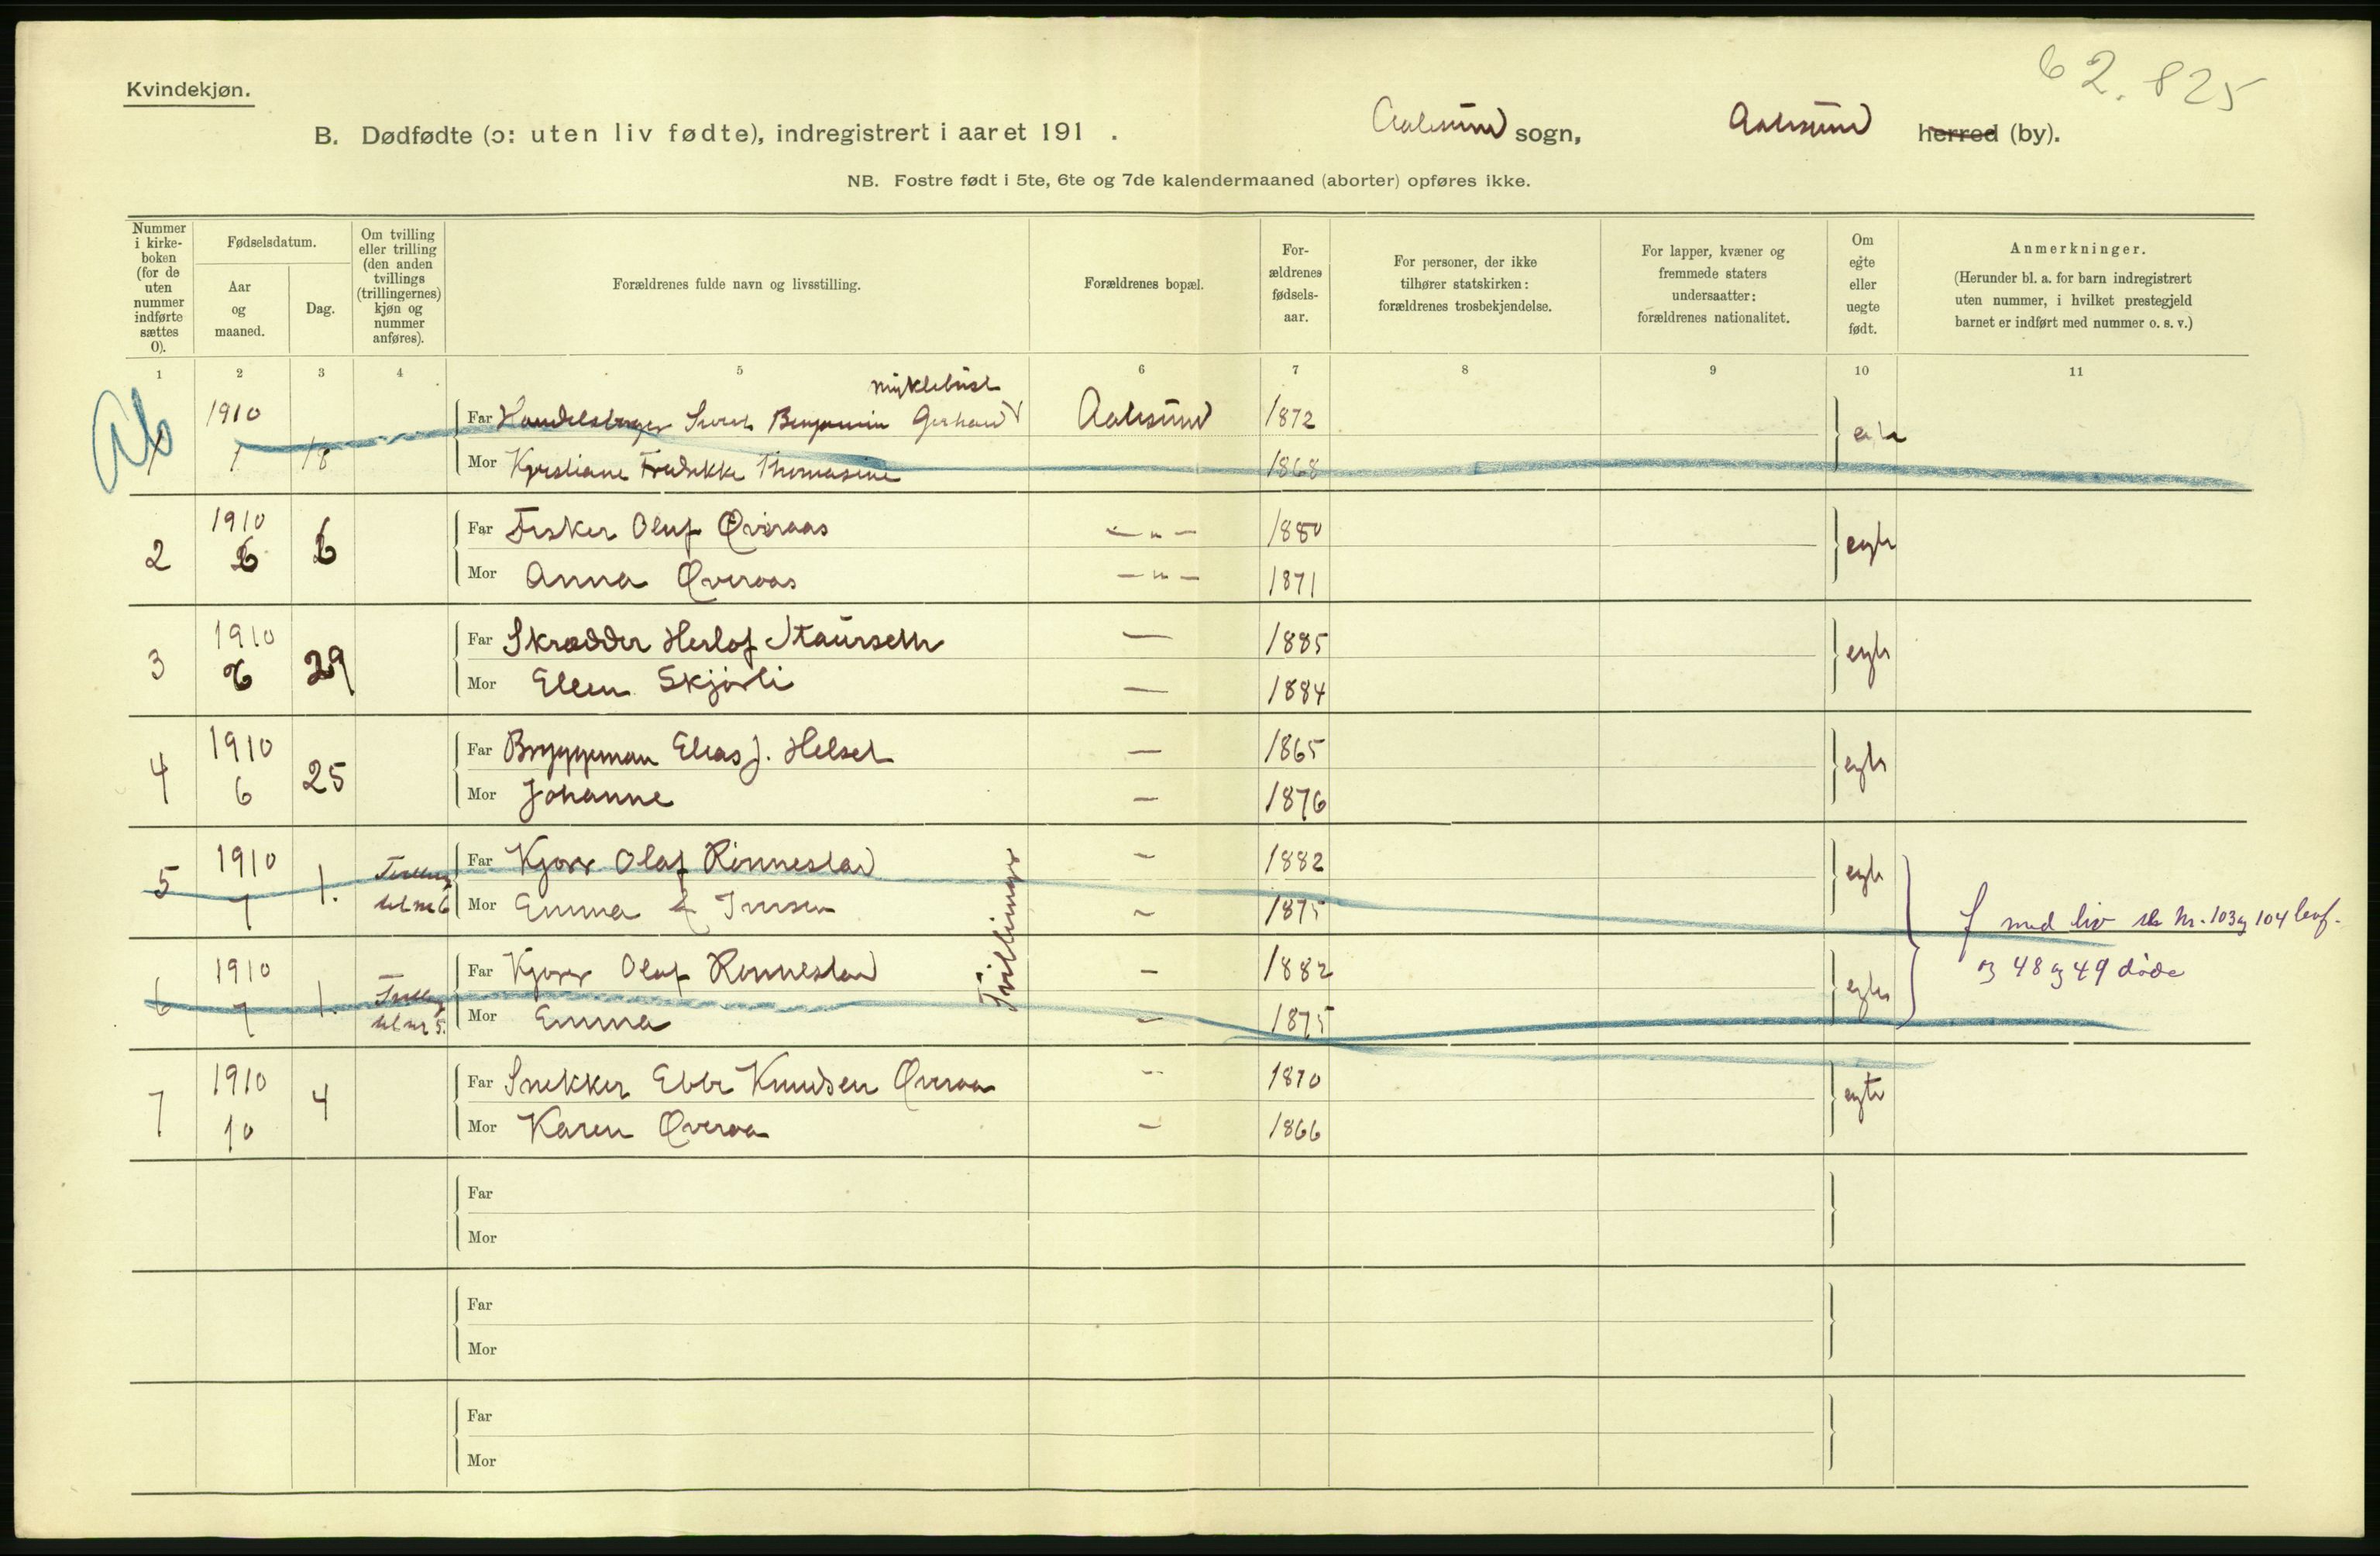 62.825
Kvindekjøn.
B. Dødfødte (ɔ: uten liv fødte), indregistrert i aaret 191 . Aalesund sogn, Aalesund herred (by).
NB. Fostre født i 5te, 6te og 7de kalendermaaned (aborter) opføres ikke.
Nummer i kirke-boken (for de uten nummer indførte sættes 0).
Fødselsdatum.
Aar og maaned.
Dag.
Om tvilling eller trilling (den anden tvillings (trillingernes) kjøn og nummer anføres).
Forældrenes fulde navn og livsstilling.
Forældrenes bopæl.
For-ældrenes fødsels-aar.
For personer, der ikke tilhører statskirken: forældrenes trosbekjendelse.
For lapper, kvæner og fremmede staters undersaatter: forældrenes nationalitet.
Om egte eller uegte født.
Anmerkninger.
(Herunder bl. a. for barn indregistrert uten nummer, i hvilket prestegjeld barnet er indført med nummer o. s. v.)
1 2 3 4 5 6 7 8 9 10 11
Ab
Myklebust
1910 Far Benjamin Gerhard Aalesund 1872
1 18 Mor Kristiane Fredrikke Thomasine 1868
2 1910 6 6 Far Fisker Oluf Øveraas — „ — 1880 egte
Mor Anna Øveraas — „ — 1871
3 1910 29 Far Skrædder Herlof Staurseth — 1885 egte
Mor Ellen Skjårli — 1884
4 1910 25 Far Bryggeman Elias J. Helset — 1865 egte
6 Mor Johanne — 1876
5 1910 1. Tvilling Far Olaf Rønnestad — 1882 egte
7 til nr 6 Mor Emma Iversen — 1875
Tvillinger
f med liv se Nr. 103 og 104 levf.
og 48 og 49 døde
6 1910 1. Tvilling Far Olaf Rønnestad — 1882 egte
7 til nr 5. Mor Emma — 1875
7 1910 4 Far Snekker Ebbe Knudsen Øveraa — 1870 egte
10 Mor Karen Øveraa — 1866
Far
Mor
Far
Mor
Far
Mor